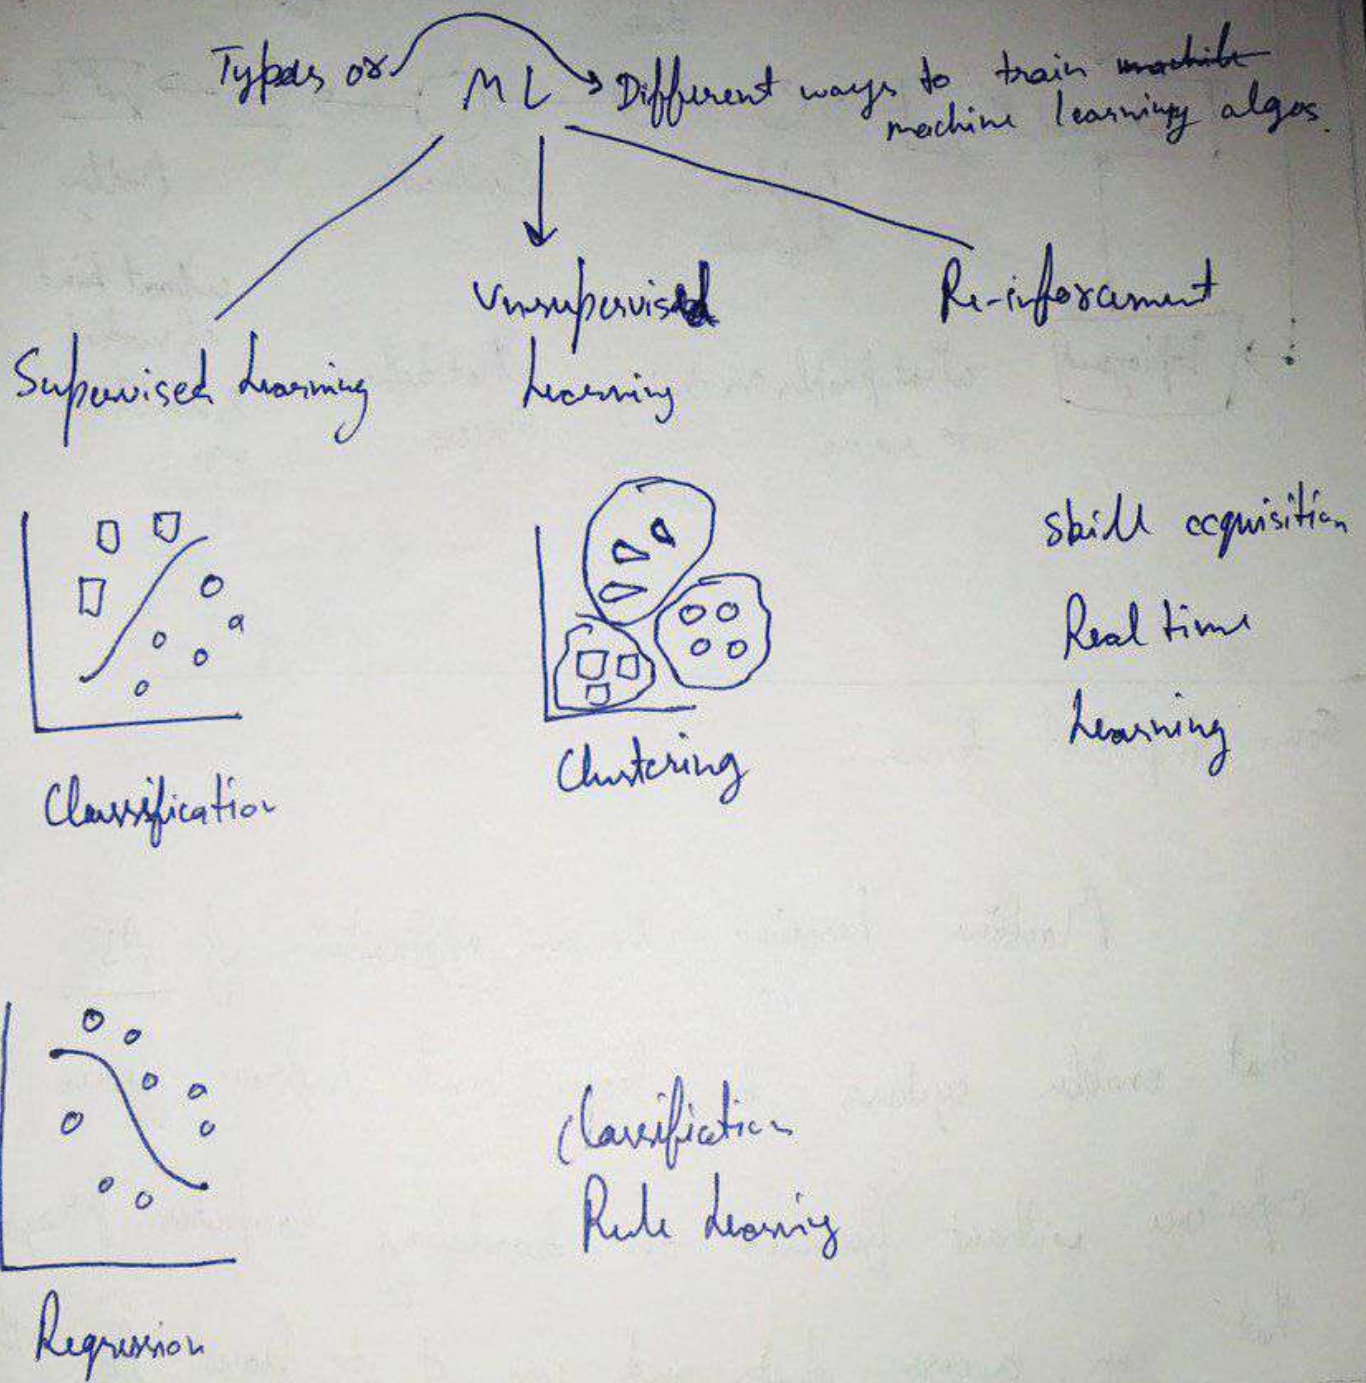 Types or ML Different ways to train machile
machine learning algos.
Supervised Learning
Unsupervised
Learning
Re-inforcement
Classification
Clustering
skill acquisition
Real time
Learning
Regression
Classification
Rule Learning